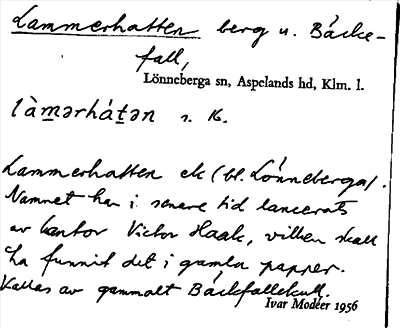 Lammerhatten berg u. Bäcke-
fall,
Lönneberga sn, Aspelands hd, Klm. l.
làmərhátən s. 16.
Lammerhatten ek (bl. Lönneberga).
Namnet har i senare tid lancerats
av kantor Victor Haak, vilken skall
ha funnit det i gamla papper.
Kallas av gammalt Bäckfallekull.
Ivar Modéer 1956